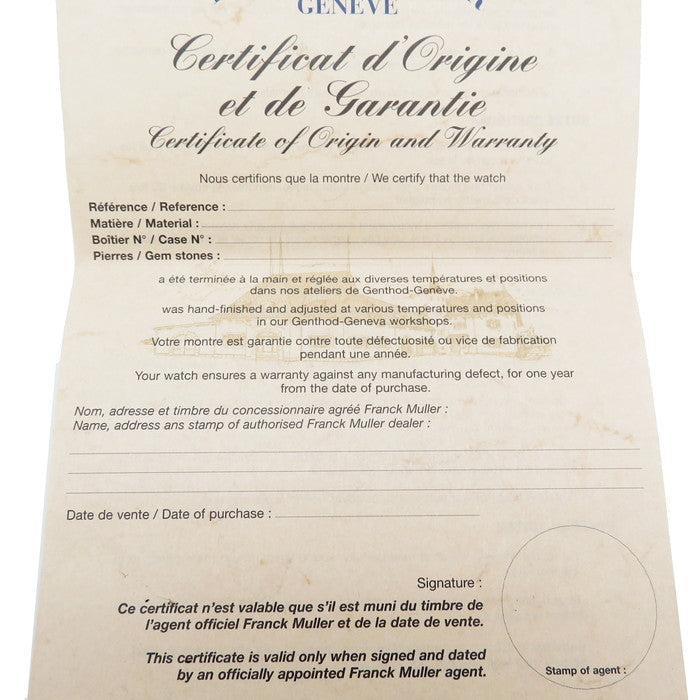 GENEVE
Certificat d'Origine
et de Garantie
Certificate of Origin and Warranty
Nous certifions que la montre / We certify that the watch
Référence / Reference :
Matière / Material :
Boîtier N° / Case N° :
Pierres / Gem stones :
a été terminée à la main et réglée aux diverses températures et positions
dans nos ateliers de Genthod-Genève.
was hand-finished and adjusted at various temperatures and positions
in our Genthod-Geneva workshops.
Votre montre est garantie contre toute défectuosité ou vice de fabrication
pendant une année.
Your watch ensures a warranty against any manufacturing defect, for one year
from the date of purchase.
Nom, adresse et timbre du concessionaire agréé Franck Muller :
Name, address ans stamp of authorised Franck Muller dealer :
Date de vente / Date of purchase :
Signature :
Ce certificat n'est valable que s'il est muni du timbre de
l'agent officiel Franck Muller et de la date de vente.
This certificate is valid only when signed and dated
by an officially appointed Franck Muller agent.
Stamp of agent :